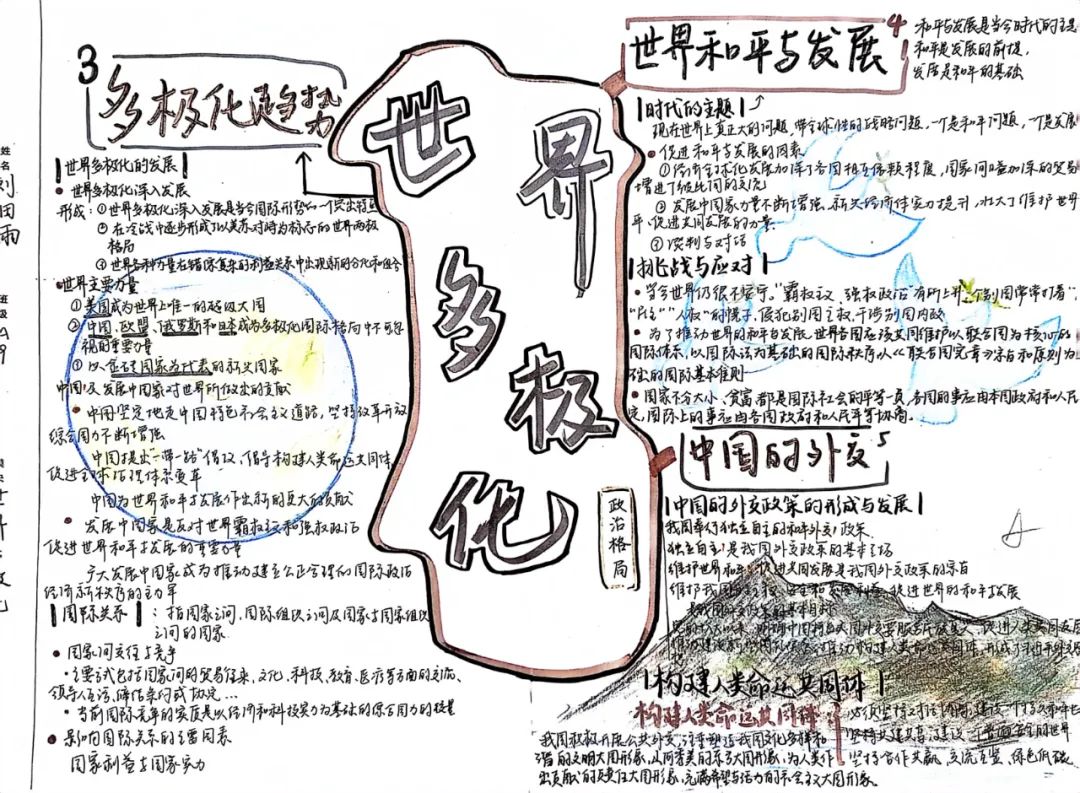 姓名
刘田雨
班级
A9
世界多极化
政治格局
3
多极化趋势
世界多极化的发展
世界多极化深入发展
形成：①世界多极化深入发展是当今国际形势的一个突出特点
在冷战中逐步形成了以美苏对峙为标志的世界两极
格局
世界各种力量在错综复杂的利益关系中出现新的分化和组合
世界主要力量
①美国成为世界上唯一的超级大国
②中国、欧盟、俄罗斯和日本成为多极化国际格局中不可忽
视的重要力量
国家为代表的新兴国家
中国及发展中国家对世界所做出的贡献
中国坚定地走中国特色社会主义道路，坚持改革开放
综合国力不断增强
中国提出"一带一路"倡议，倡导构建人类命运共同体
促进全球治理体系变革
中国为世界和平与发展作出新的更大的贡献
发展中国家是反对世界霸权主义和强权政治
促进世界和平与发展的重要力量
广大发展中国家成为推动建立公正合理的国际政治
经济新秩序的主力军
国际关系：指国家之间，国际组织之间及国家与国家组织
之间的国家
国家间交往与竞争
主要方式包括国家间的贸易往来、文化、科技、教育、医疗等方面的交流、
领导人互访、缔结条约或协定…
当前国际竞争的实质是以经济和科技实力为基础的综合国力的较量
影响国际关系的主要因素
国家利益与国家实力
4
世界和平与发展
和平与发展是当今时代的主题
和平是发展的前提，
发展是和平的基础
时代的主题
现在世界上真正大的问题，带全球性的战略问题，一个是和平问题，一个是发展
促进和平与发展的因素
①经济全球化发展加深了各国相互依赖程度，国家间日益加深的贸易
增进了彼此间的交流
发展中国家力量不断增强，新兴经济体实力提升，壮大了维护世界
平，促进共同发展的力量
谈判与对话
挑战与应对
当今世界仍很不安宁。霸权主义、强权政治有所上升，个别国常常打着"
"民主""人权"的幌子，侵犯别国主权，干涉别国内政
为了推动世界的和平与发展，世界各国应该共同维护以联合国为核心的
国际体系，以国际法为基础的国际秩序，以《联合国宪章》宗旨和原则为
础的国际基本准则
国家不分大小、贫富都是国际社会的平等一员，各国的事应由本国政府和人民
定，国际上的事应由各国政府和人民平等协商。
中国的外交
5
中国的外交政策的形成与发展
我国奉行独立自主的和平外交政策
独立自主是我国外交政策的基本立场
维护世界和平、促进共同发展是我国外交政策的宗旨
促进世界的和平与发展
构建人类命运共同体
构建人类命运共同体
我国积极开展公共外交，注重塑造我国文化多样和
谐的文明大国形象，山河秀美的东方大国形象，为人类作
出贡献的负责任大国形象，充满希望与活力的社会主义大国形象。
坚持合作共赢，交流互鉴，绿色低碳